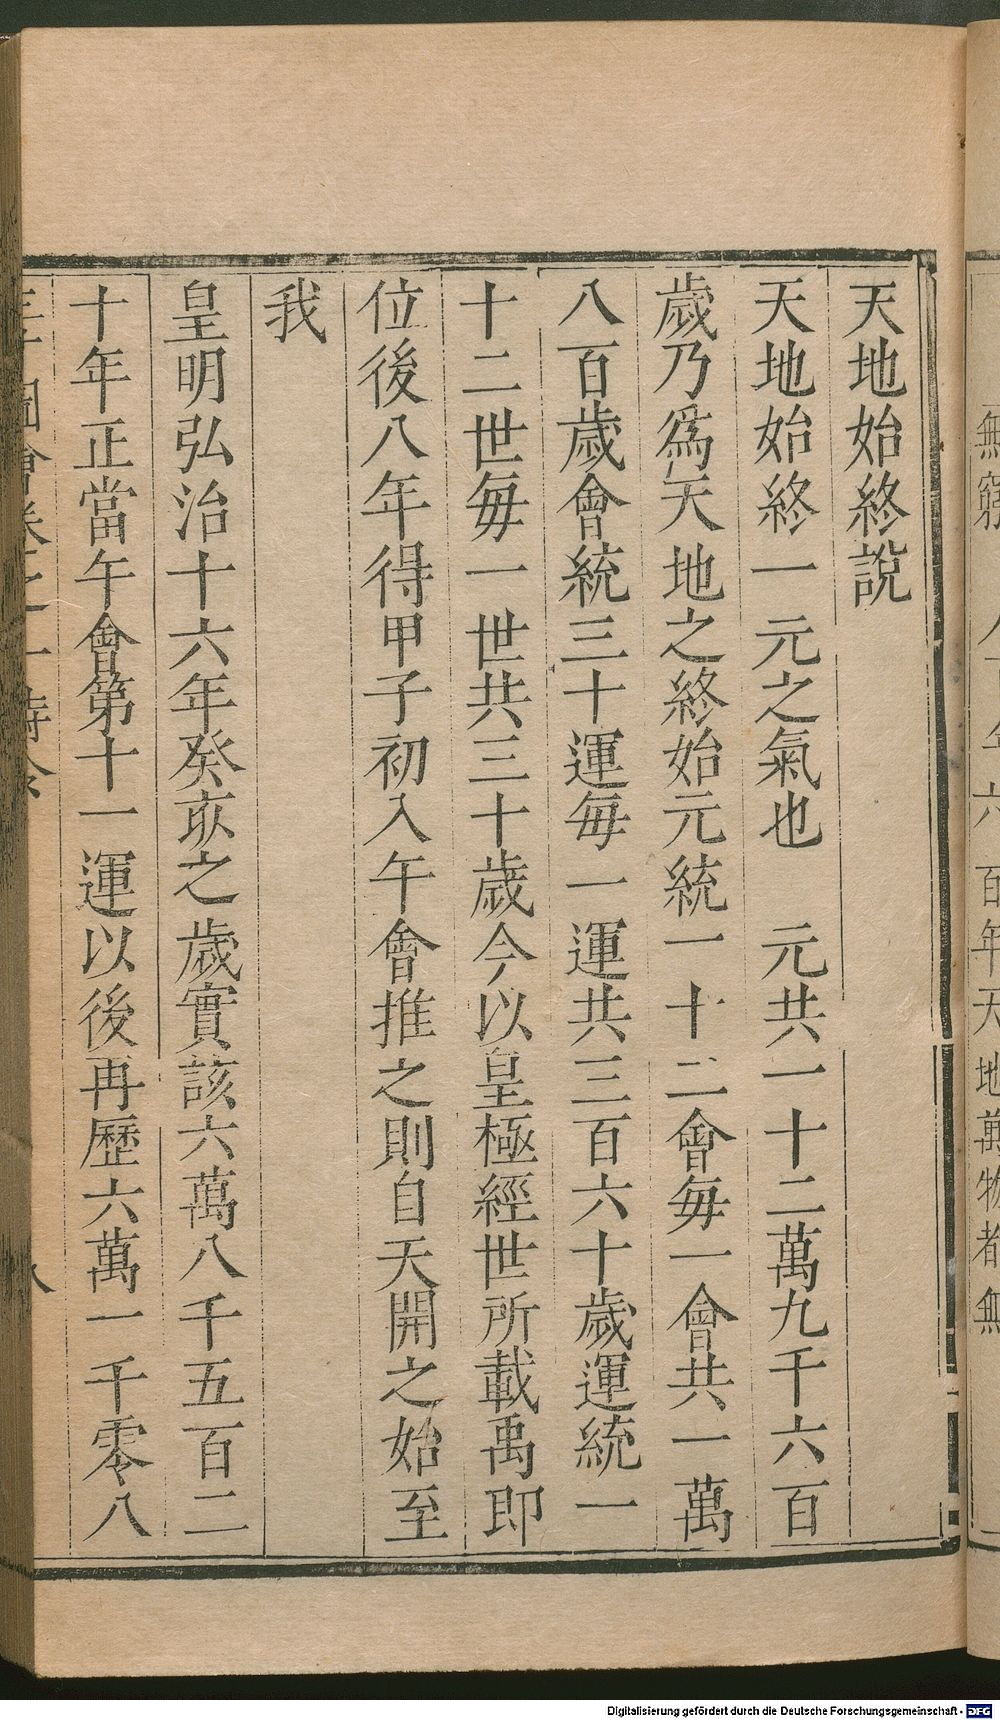 天地始終說
天地始終一元之氣也　元共一十二萬九千六百
歲乃爲天地之終始元統一十二會每一會共一萬
八百歲會統三十運每一運共三百六十歲運統一
十二世每一世共三十歲今以皇極經世所載禹即
位後八年得甲子初入午會推之則自天開之始至
我
皇明弘治十六年癸亥之歲實該六萬八千五百二
十年正當午會第十一運以後再歷六萬一千零八
Digitalisierung gefördert durch die Deutsche Forschungsgemeinschaft - DFG